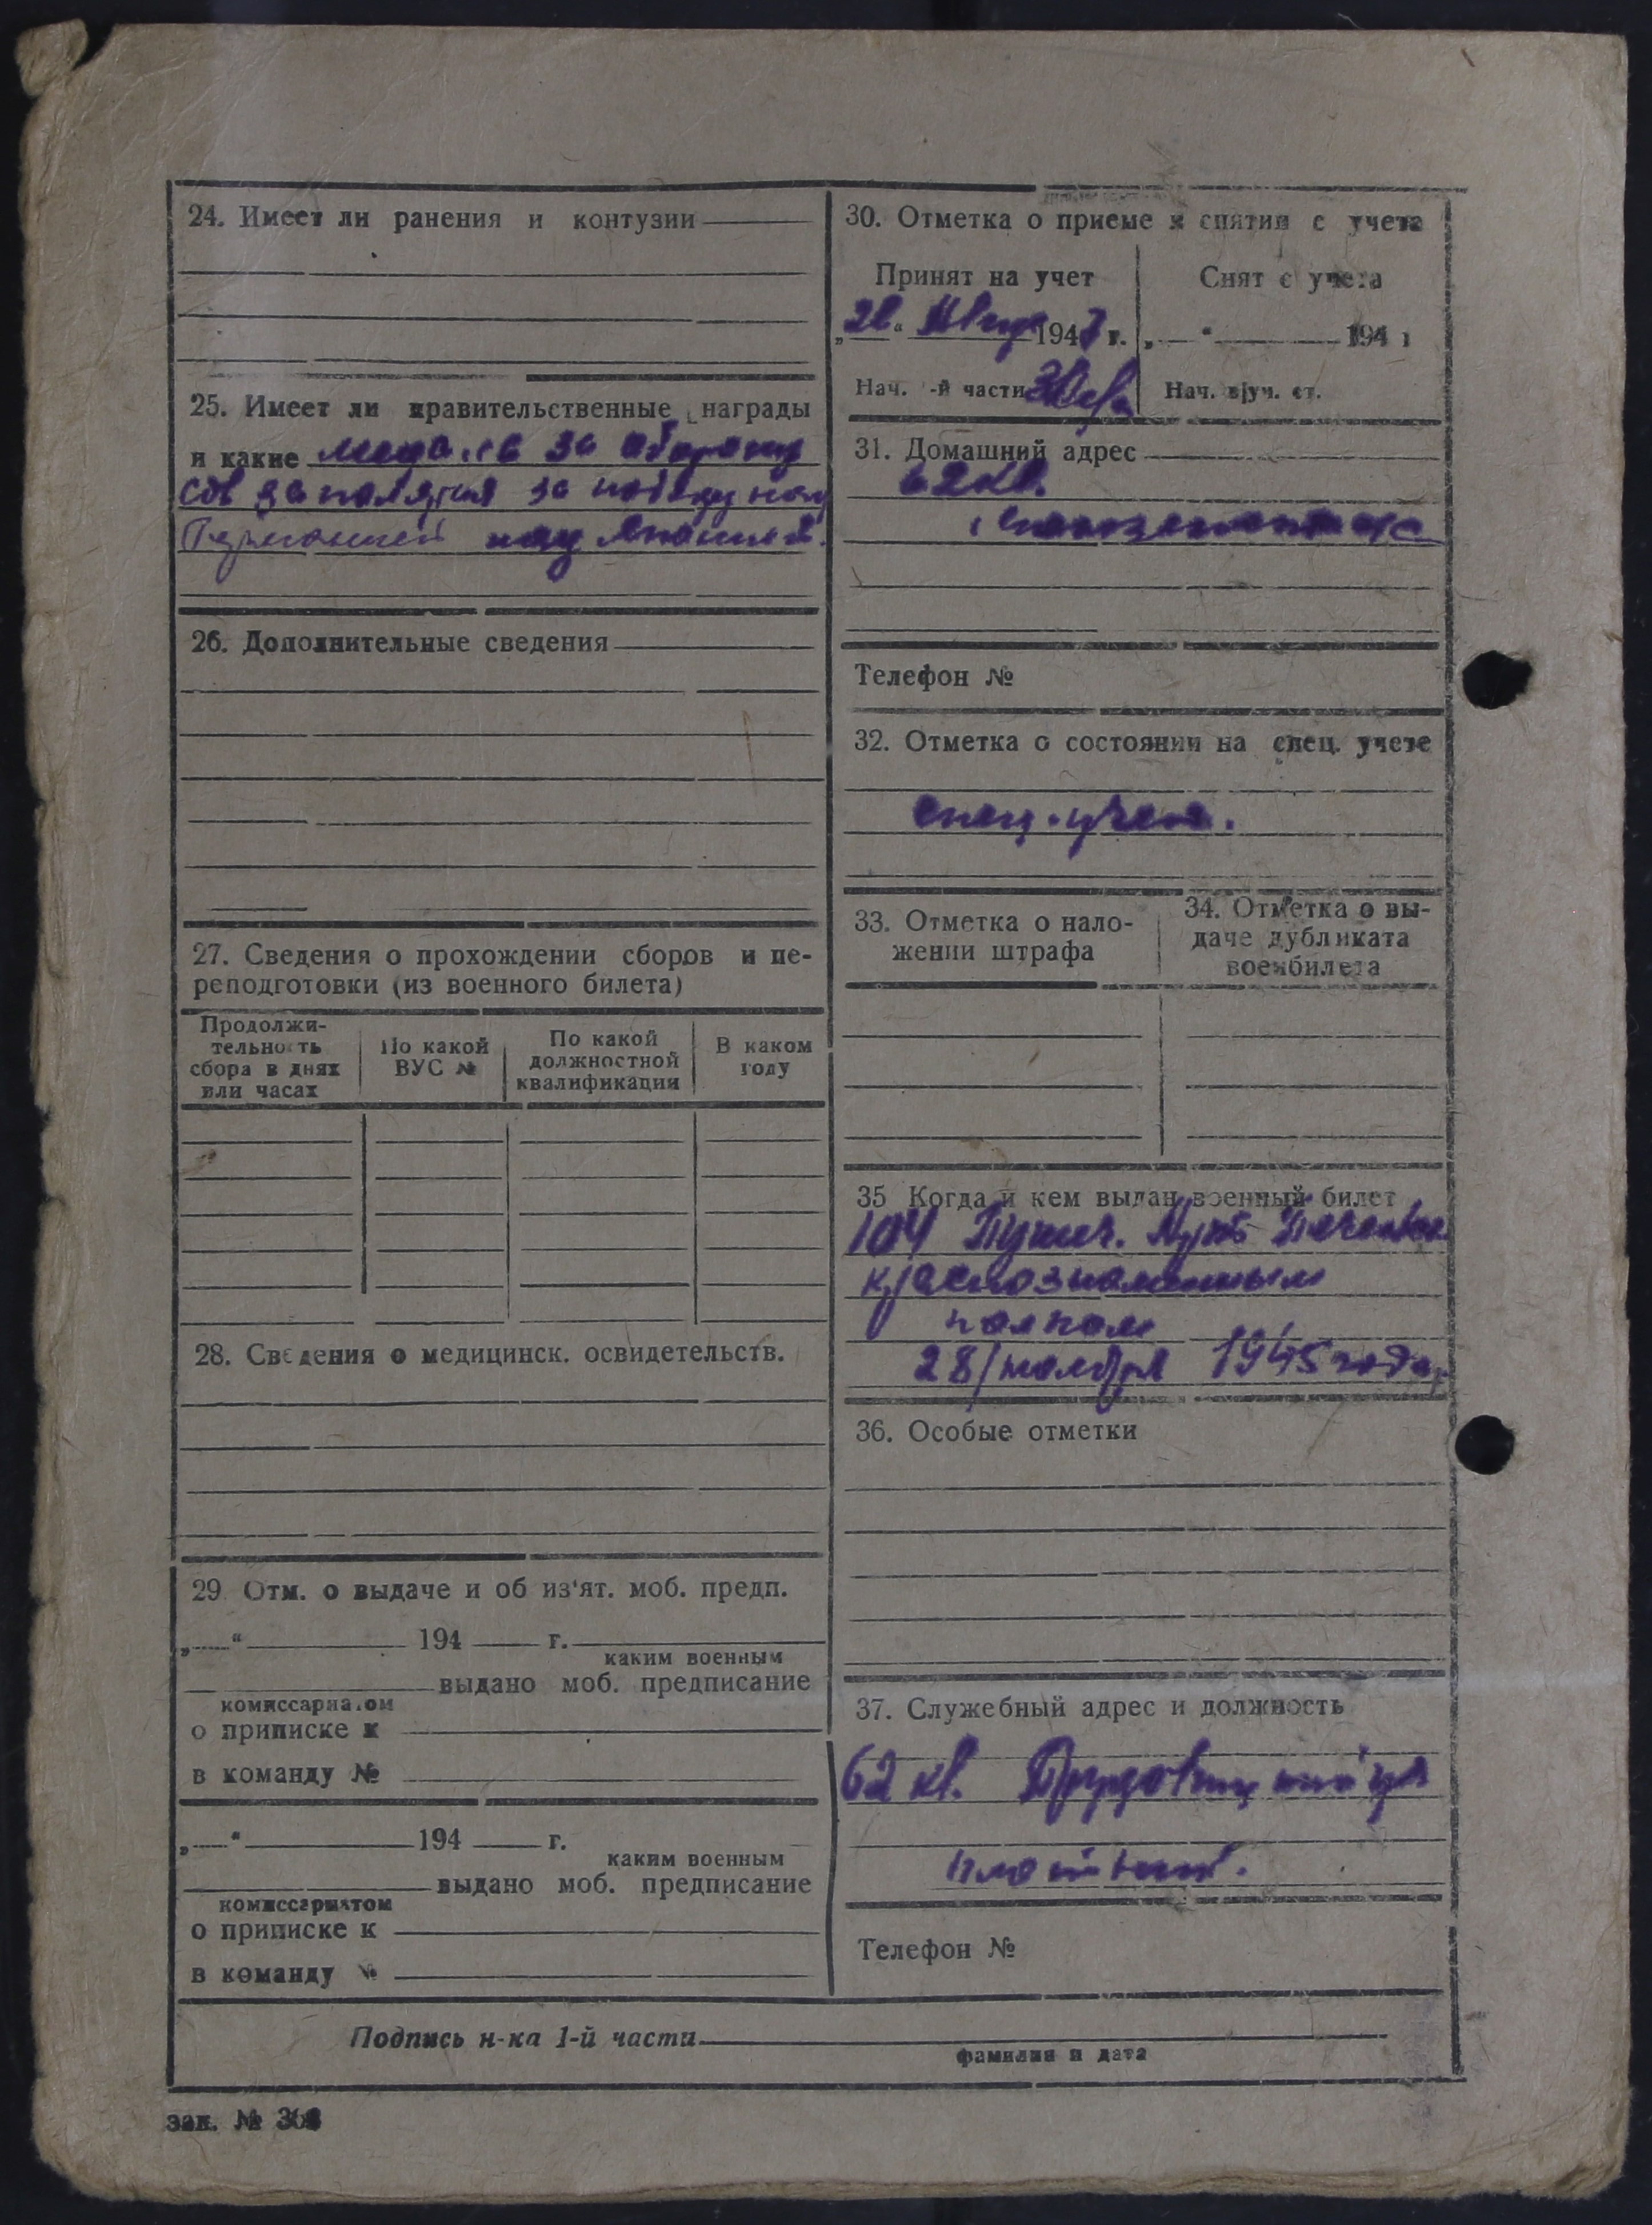 24. Имеет ли ранения и контузии
25. Имеет ли правительственные награды
и какие медаль за оборону
Сов заполярья за победу над
Германией над Японией.
26. Дополнительные сведения
27. Сведения о прохождении сборов и пе-
реподготовки (из военного билета)
Продолжи-
тельность
сбора в днях
или часах
По какой
ВУС №
По какой
должностной
квалификации
В каком
году
28. Сведения о медицинск. освидетельств.
29 Отм. о выдаче и об из'ят. моб. предп.
„ “ 194 г.
каким военным
выдано моб. предписание
комиссариатом
о приписке к
в команду №
„ “ 194 г.
каким военным
выдано моб. предписание
комиссариатом
о приписке к
в команду №
30. Отметка о приеме и снятии с учета
Принят на учет
194 г.
Нач. -й части
Снят с учета
„ “ 194 г
Нач. в/уч. ст.
31. Домашний адрес
62 кв.
Телефон №
32. Отметка о состоянии на спец. учете
спец. учета.
33. Отметка о нало-
жении штрафа
34. Отметка о вы-
даче дубликата
военбилета
35 Когда и кем выдан военный билет
104 Пушеч. Арт.
краснознаменным
полком
28/ноября 1945 года
36. Особые отметки
37. Служебный адрес и должность
62 кв.
плотник.
Телефон №
Подпись н-ка 1-й части
фамилия и дата
зак. №